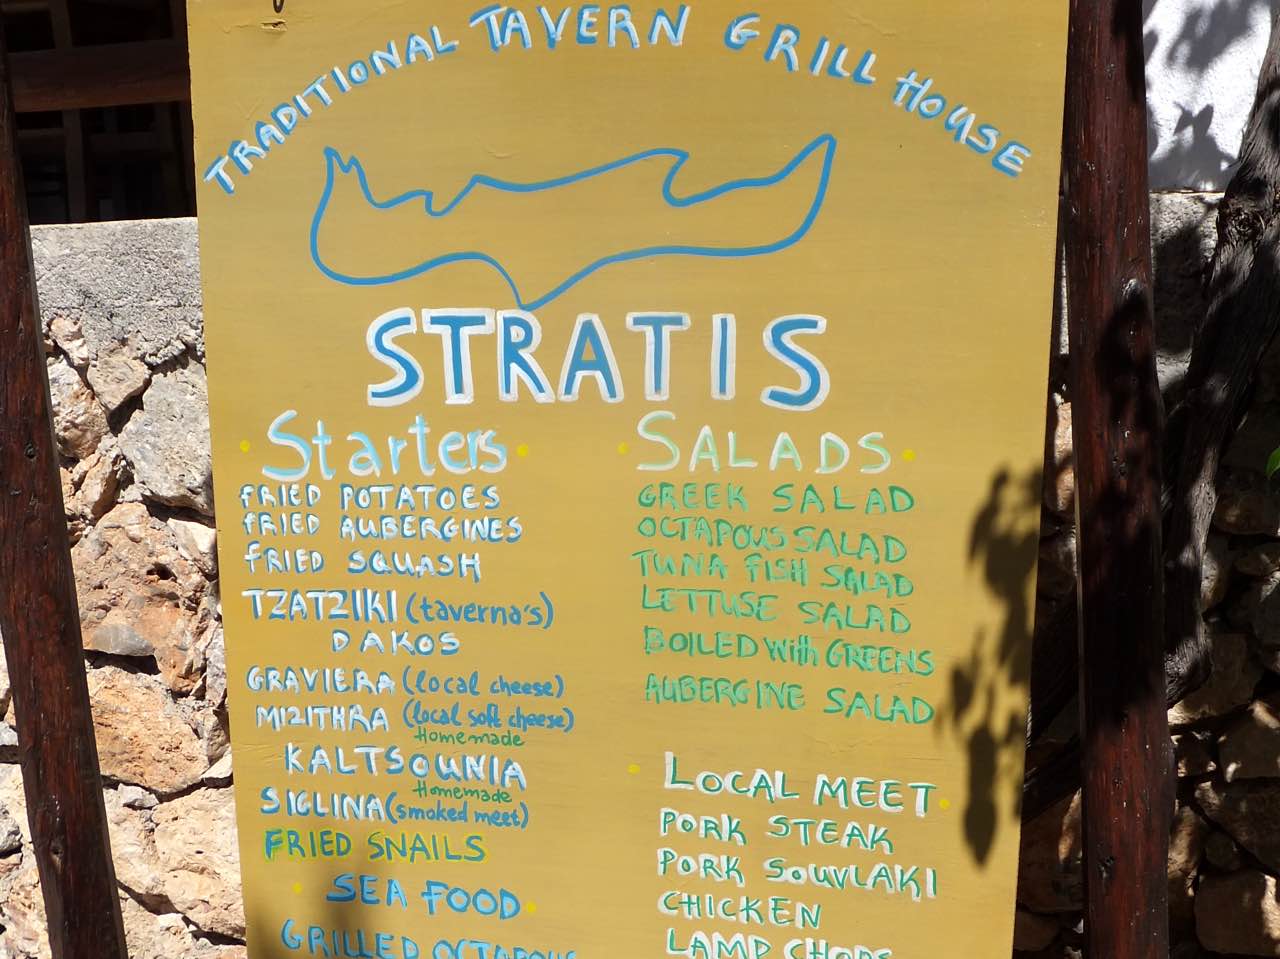 TRADITIONAL TAVERN GRILL HOUSE
STRATIS
Starters
FRIED POTATOES
FRIED AUBERGINES
FRIED SQUASH
TZATZIKI (taverna's)
DAKOS
GRAVIERA (local cheese)
MIZITHRA (local soft cheese)
Homemade
KALTSOUNIA
Homemade
SIGLINA (smoked meet)
FRIED SNAILS
SEA FOOD
GRILLED OCTAPOUS
SALADS
GREEK SALAD
OCTAPOUS SALAD
TUNA FISH SALAD
LETTUSE SALAD
BOILED with GREENS
AUBERGINE SALAD
LOCAL MEET
PORK STEAK
PORK SOUVLAKI
CHICKEN
LAMP CHOPS